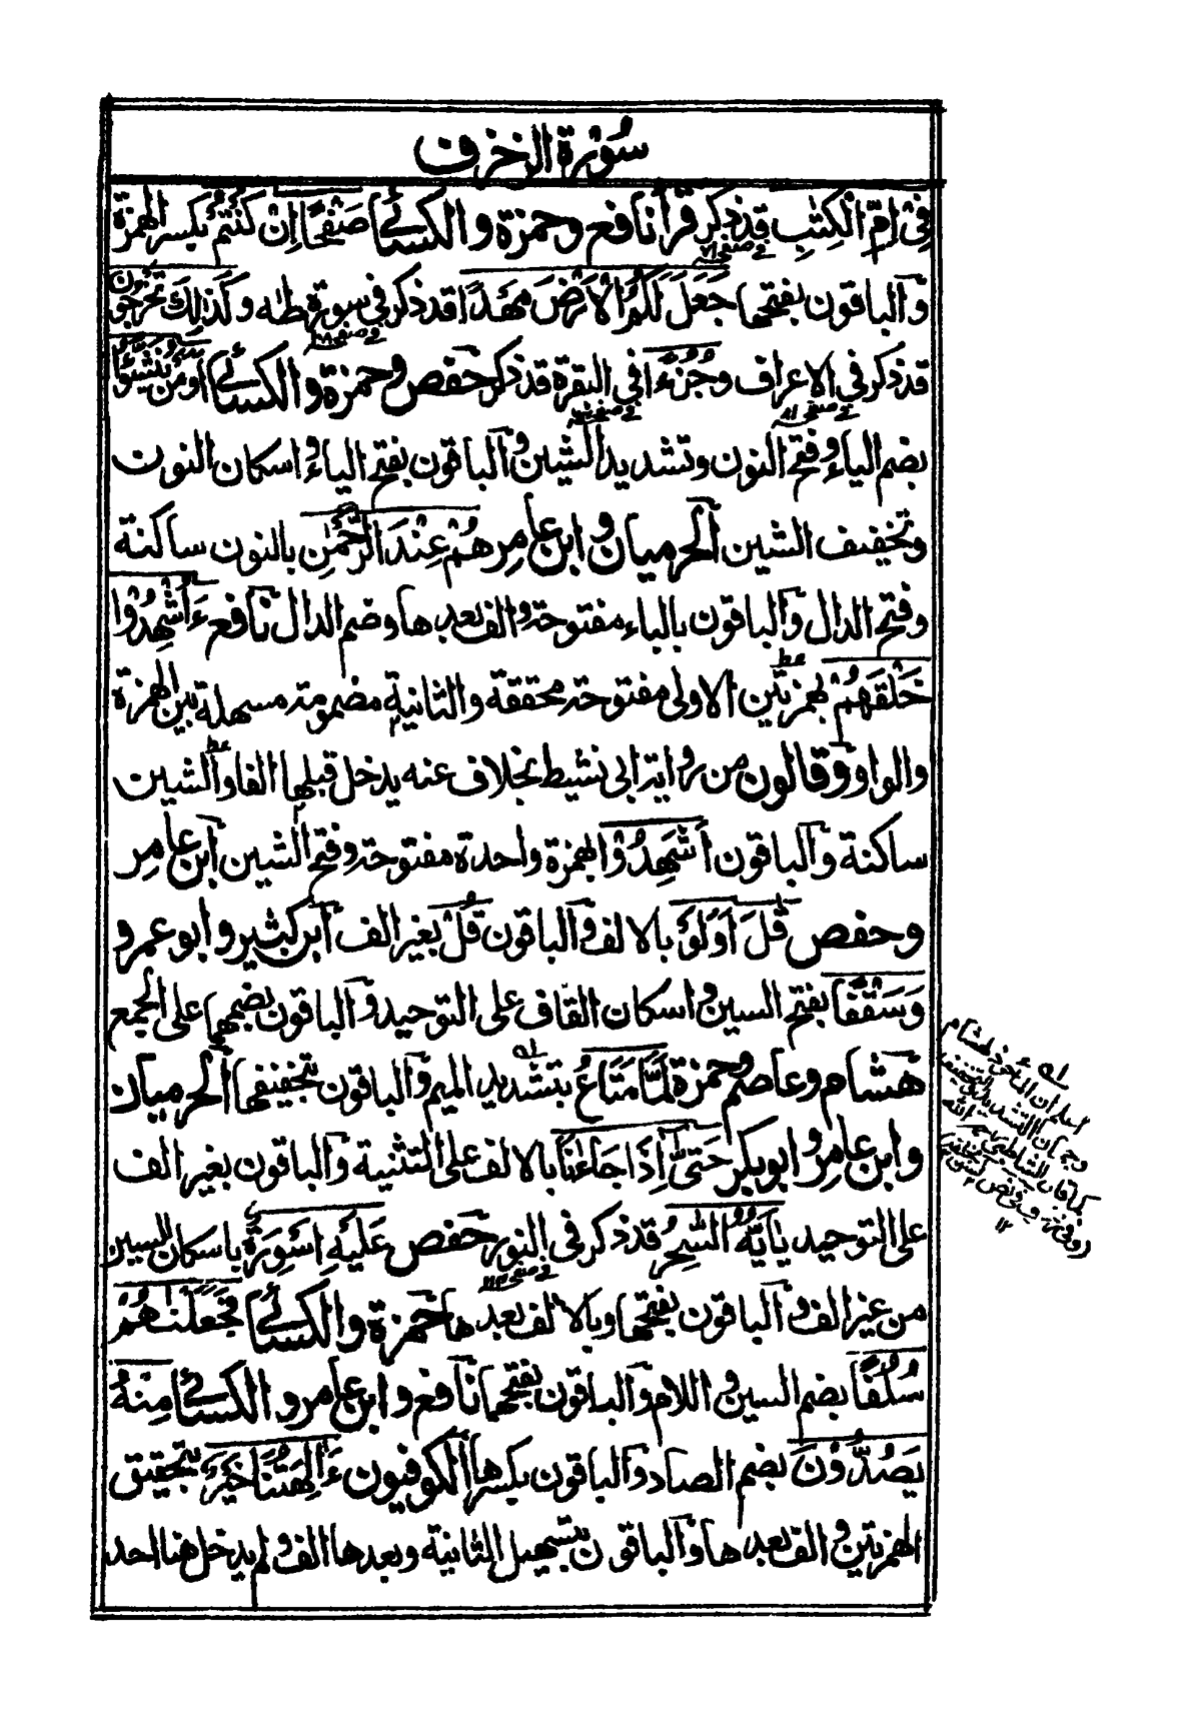 سُوْرَةُ الزخرف
فِيْٓ اُمِّ الْكِتٰبِ قد ذكر قرأ نافع وحمزة والكسائي صَفْحًا اِنْ كُنْتُمْ بكسر الهمزة
والباقون بفتحها جَعَلَ لَكُمُ الْاَرْضَ مَهْدًا قد ذكر في سورة طٰه وكَذٰلِكَ تُخْرَجُوْنَ
قد ذكر في الاعراف وجُزْءًا في البقرة قد ذكر حفص وحمزة والكسائي اَوَمَنْ يُّنَشَّؤُا
بضم الياء وفتح النون وتشديد الشين والباقون بفتح الياء واسكان النون
وتخفيف الشين الحرميان وابن عامر هُمْ عِنْدَ الرَّحْمٰنِ بالنون ساكنة
وفتح الدال والباقون بالباء مفتوحة والف بعدها وضم الدال نافع ءَاُشْهِدُوْا
خَلْقَهُمْ بهمزتين الاولى مفتوحة محققة والثانية مضمومة مسهلة بين الهمزة
والواو وقالون من رواية ابي نشيط بخلاف عنه يدخل قبلها الفا والشين
ساكنة والباقون اَشَهِدُوْا بهمزة واحدة مفتوحة وفتح الشين ابن عامر
وحفص قٰلَ اَوَلَوْ بالالف والباقون قُلْ بغير الف ابن كثير وابو عمرو
وَسَقْفًا بفتح السين واسكان القاف على التوحيد والباقون بضمها على الجمع
هشام وعاصم وحمزة لَمَّا مَتَاعُ بتشديد الميم والباقون بتخفيفها الحرميان
وابن عامر وابو بكر حَتّٰٓى اِذَا جَآءٰنَا بالالف على التثنية والباقون بغير الف
على التوحيد يٰٓاَيُّهَ السّٰحِرُ قد ذكر في النور حفص عَلَيْهِ اَسْوِرَةٌ باسكان السين
من غير الف والباقون بفتحها وبالالف بعدها حمزة والكسائي فَجَعَلْنٰهُمْ
سُلُفًا بضم السين واللام والباقون بفتحهما نافع وابن عامر والكسائي مِنْهُ
يَصُدُّوْنَ بضم الصاد والباقون بكسرها الكوفيون ءَاٰلِهَتُنَا خَيْرٌ بتحقيق
الهمزتين والف بعدها والباقون بتسهيل الثانية وبعدها الف ولم يدخل هنا احد